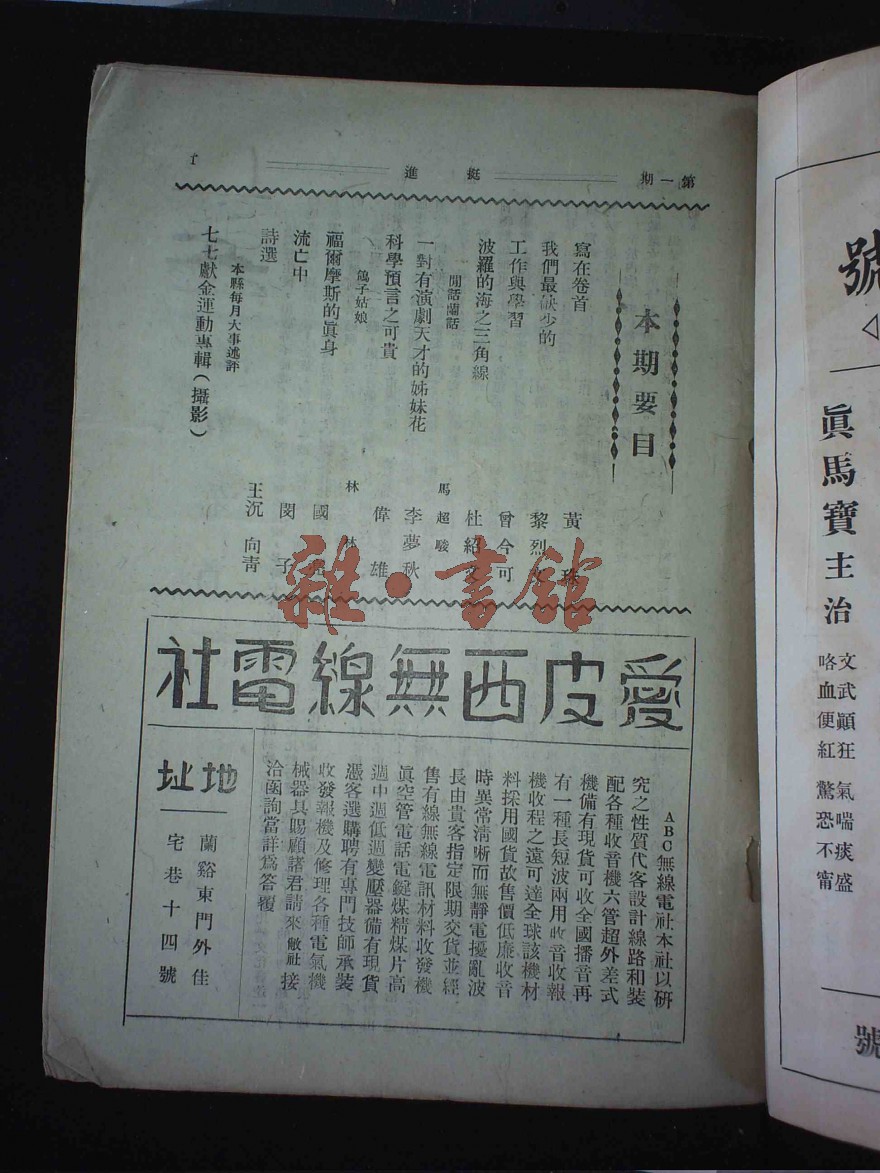 第一期
挺進
本期要目
寫在卷首
黃
我們最缺少的
黎烈文
工作與學習
曾今可
波羅的海之三角線
杜紹
閒話蘭話
馬超駿
一對有演劇天才的姊妹花
李夢秋
科學預言之可貴
偉雄
鴿子姑娘
林林
福爾摩斯的眞身
國
流亡中
閔子
詩選
王沉 向青
本縣每月大事述評
七七獻金運動專輯(攝影)
雜·書館
愛皮西無線電社
ABC無線電社本社以研
究之性質代客設計線路和裝
配各種收音機六管超外差式
機備有現貨可收全國播音再
有一種長短波兩用收音收報
機收程之遠可達全球該機材
料採用國貨故售價低廉收音
時異常淸晰而無靜電擾亂波
長由貴客指定限期交貨並經
售有線無線電訊材料收發機
眞空管電話電鍵煤精煤片高
週中週低週變壓器備有現貨
憑客選購聘有專門技師承裝
收發報機及修理各種電氣機
械器具賜顧諸君請來敝社接
洽函詢當詳爲答覆
地址
蘭谿東門外佳
宅巷十四號
號
眞馬寶主治
文武顚狂 氣喘痰盛
咯血便紅 驚恐不甯
號